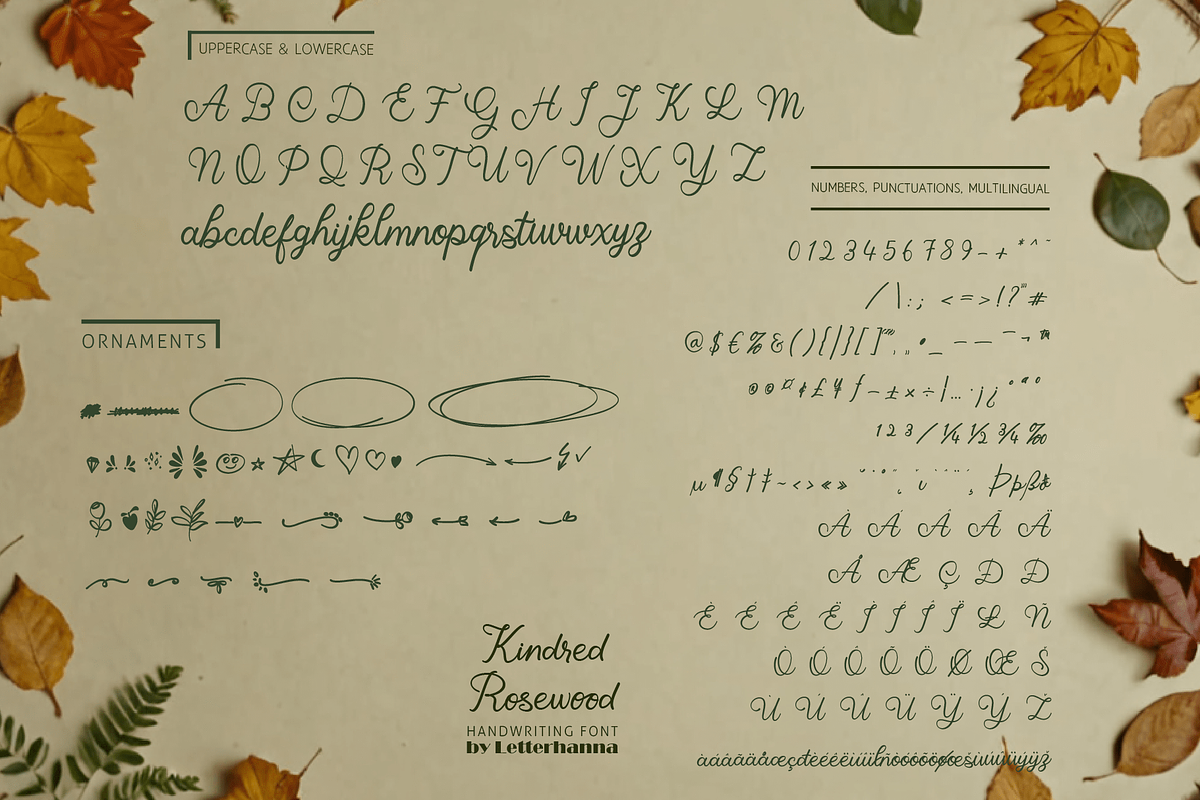 UPPERCASE & LOWERCASE
A B C D E F G H I J K L M
N O P Q R S T U V W X Y Z
abcdefghijklmnopqrstuvwxyz
NUMBERS, PUNCTUATIONS, MULTILINGUAL
0 1 2 3 4 5 6 7 8 9 - + * ^ ~
/ \ : ; < = > ! ? " #
@ $ € % & ( ) { | } [ ]
ORNAMENTS
1 2 3 / ¼ ½ ¾ ‰
À Á Â Ã Ä
Å Æ Ç Ð Đ
È É Ê Ë Ì Í Î Ï Ł Ñ
Ò Ó Ô Õ Ö Ø Œ Š
Ù Ú Û Ü Ÿ Ý Ž
Kindred
Rosewood
HANDWRITING FONT
by Letterhanna